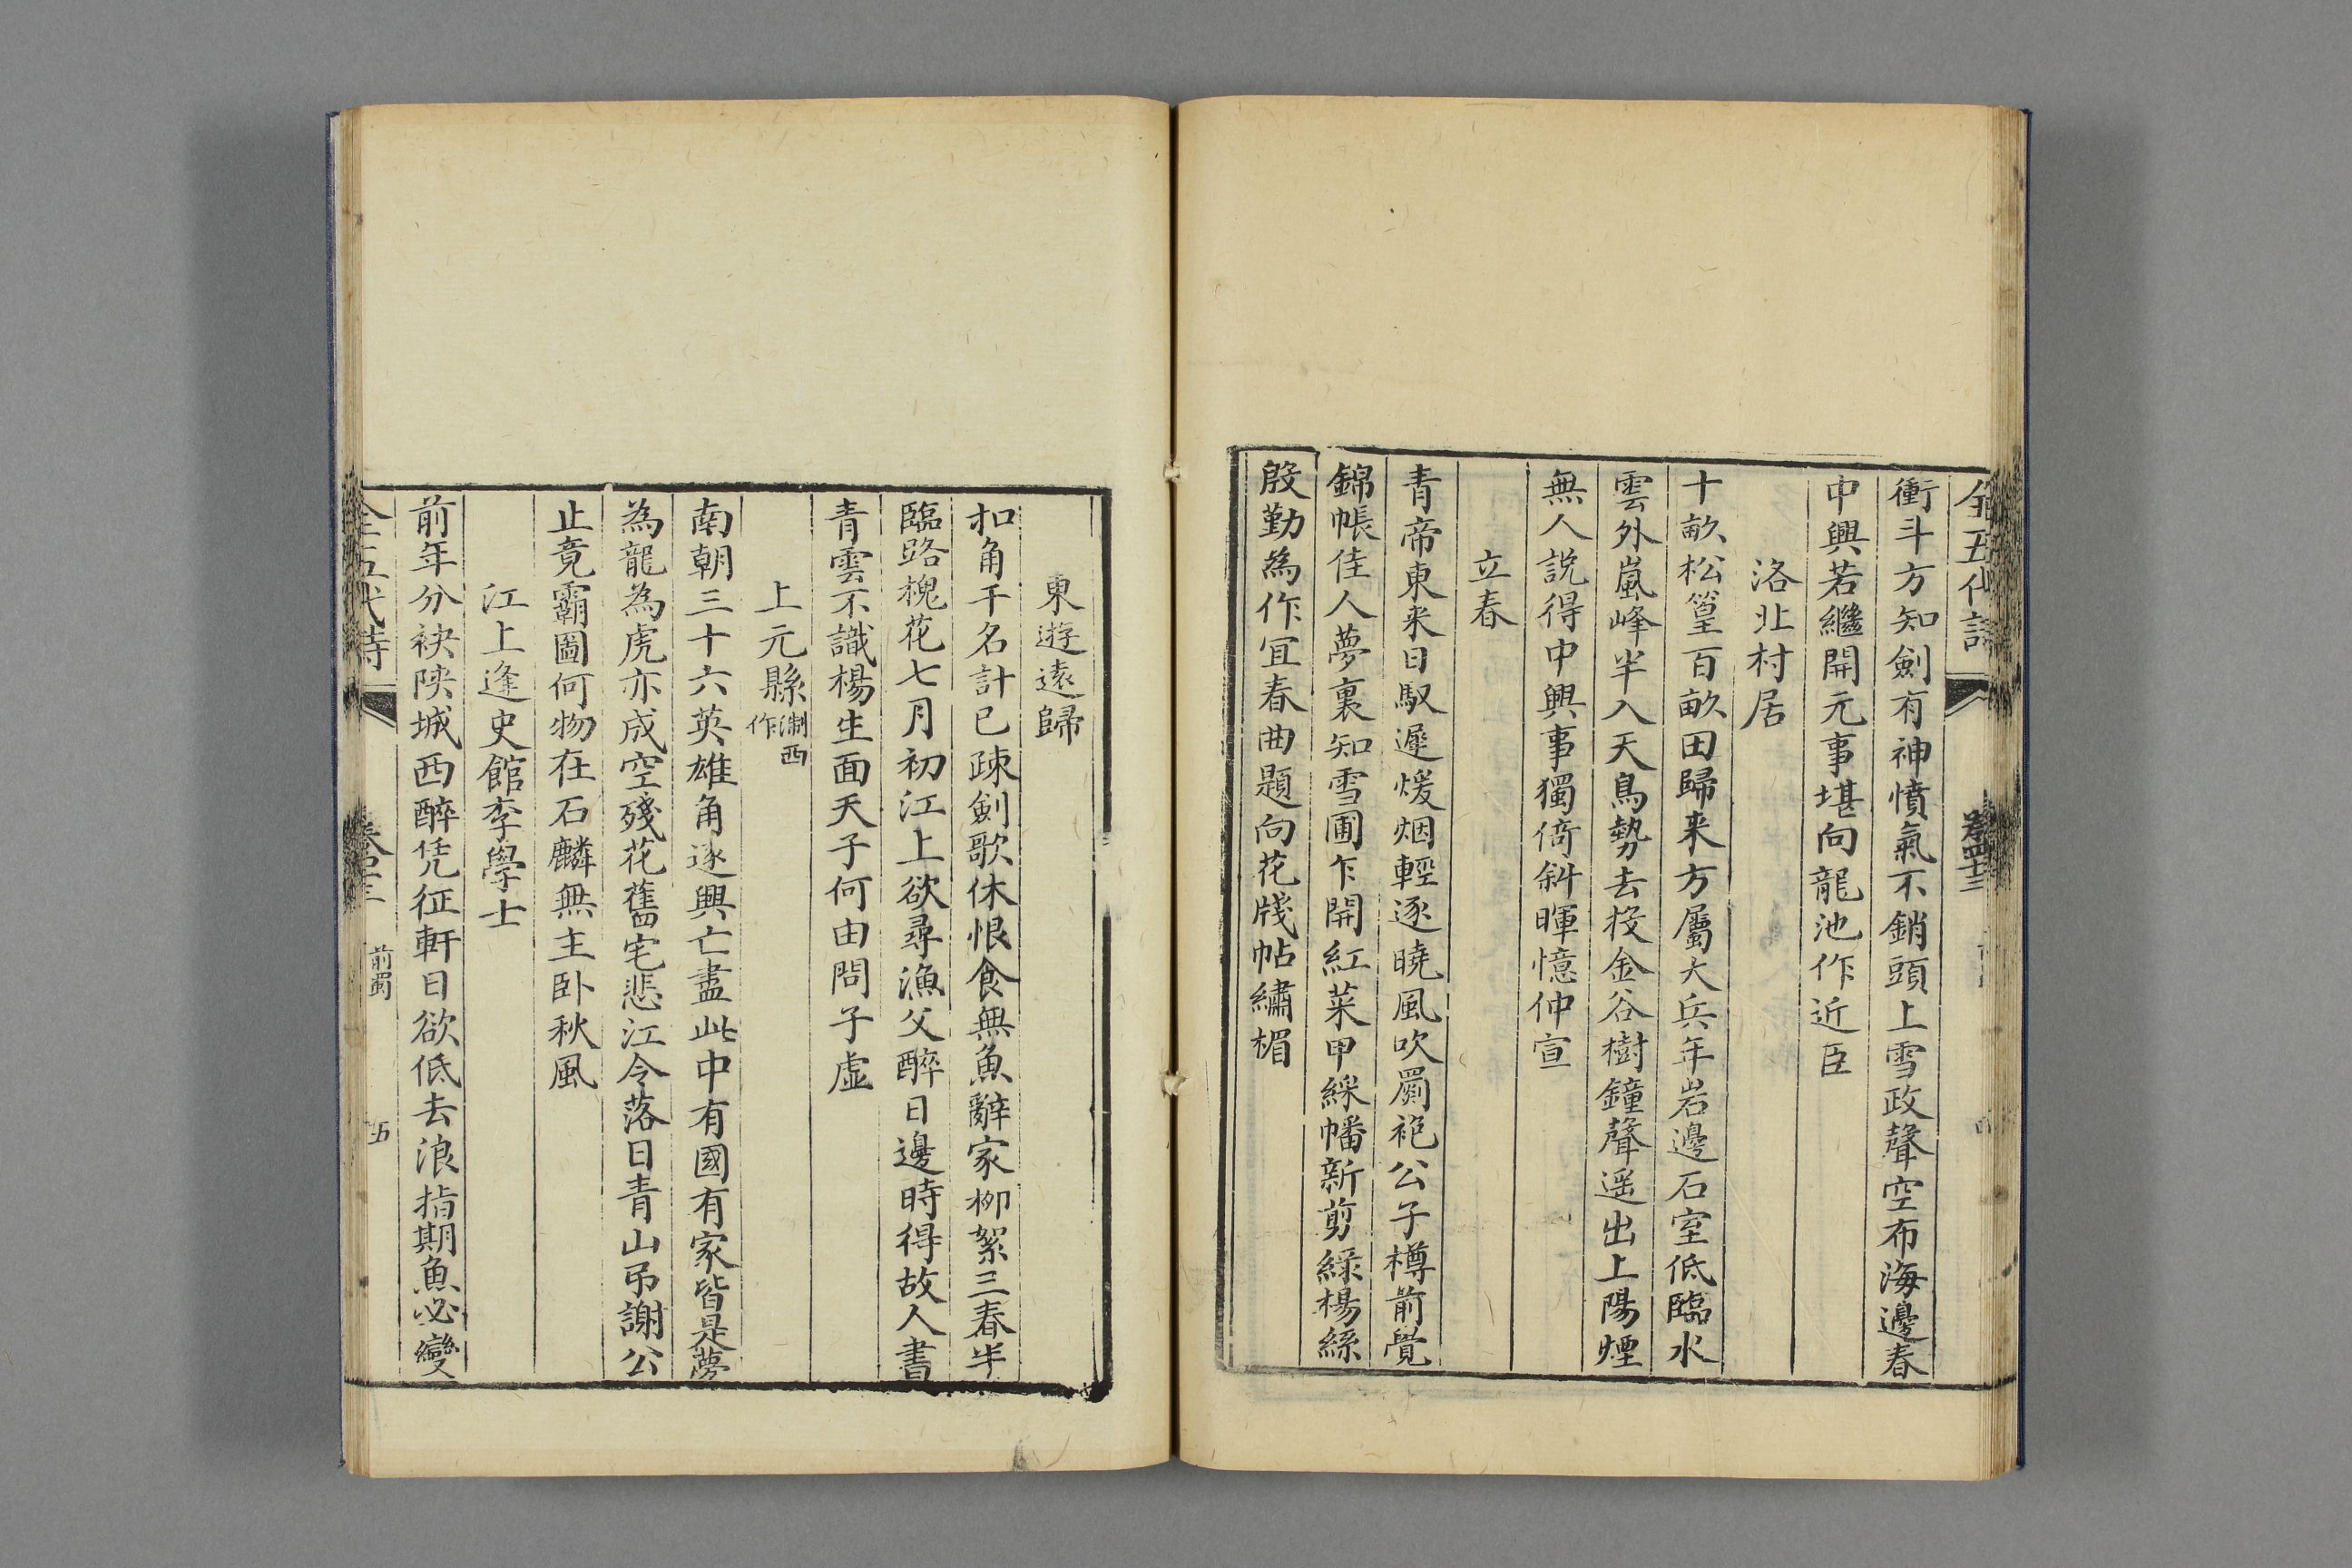 全五代詩
卷四十三
衝斗方知劍有神憤氣不銷頭上雪政聲空布海邊春
中興若繼開元事堪向龍池作近臣
洛北村居
十畝松篁百畝田歸来方屬大兵年岩邊石室低臨水
雲外嵐峰半入天鳥勢去投金谷樹鐘聲遥出上陽煙
無人説得中興事獨倚斜暉憶仲宣
立春
青帝東来日馭遲煖烟輕逐曉風吹罽袍公子樽前覺
錦帳佳人夢裏知雪圃乍開紅菜甲綵幡新剪緑楊絲
殷勤為作宜春曲題向花牋帖繡楣
東遊遠歸
扣角干名計已疎劍歌休恨食無魚辭家柳絮三春半
臨路槐花七月初江上欲尋漁父醉日邊時得故人書
青雲不識楊生面天子何由問子虛
上元縣 淛西作
南朝三十六英雄角逐興亡盡此中有國有家皆是夢
為龍為虎亦成空殘花舊宅悲江令落日青山弔謝公
止竟霸圖何物在石麟無主卧秋風
江上逢史館李學士
前年分袂陝城西醉凭征軒日欲低去浪指期魚必變
全五代詩
卷四十三
前蜀
五